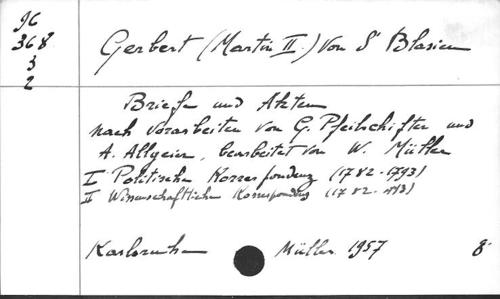 9C
368
3
2
Gerbert (Martin II.) von St Blasien
Briefe und Akten
nach Vorarbeiten von G. Pfeilschifter und
A. Allgeier, bearbeitet von W. Müller
I Politische Korrespondenz (1782-1793)
II Wissenschaftliche Korrespondenz (1782-1793)
Karlsruhe Müller 1957 8°